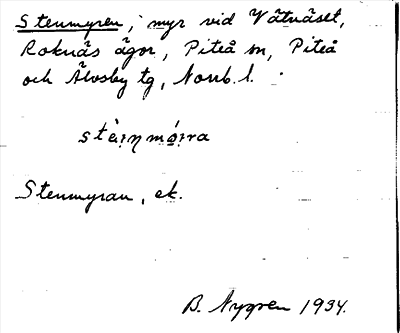 Stenmyren, myr vid Vätnäset,
Roknäs ägor, Piteå sn, Piteå
och Älvsby tg, Norrb. l.
Stenmyran, ek.
B. Nygren 1934.